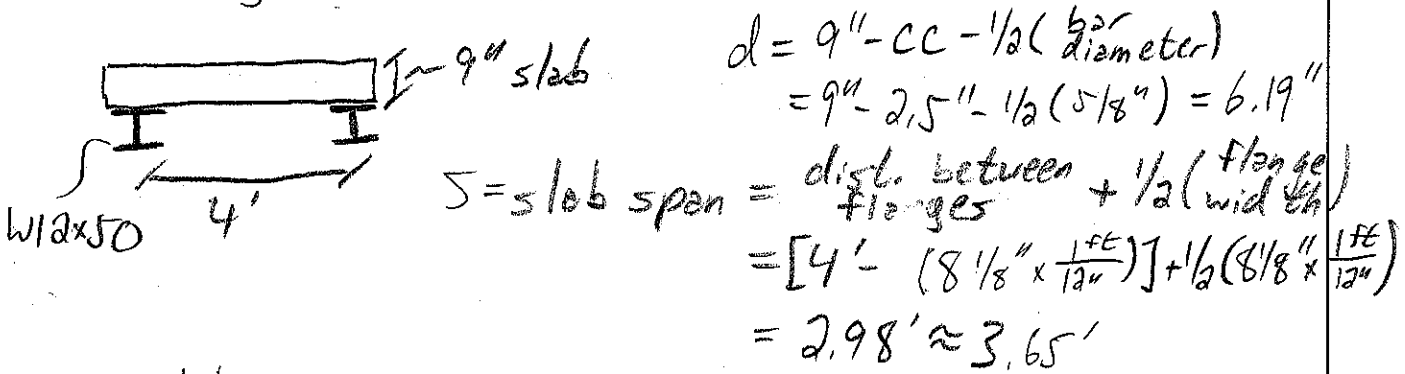 ~ 9" slab
W12x50
4'
d = 9" - CC - 1/2 ( bar diameter )
= 9" - 2.5" - 1/2 ( 5/8" ) = 6.19"
S = slab span = dist. between flanges + 1/2 ( flange width )
= [ 4' - ( 8 1/8" x 1 ft/12" ) ] + 1/2 ( 8 1/8" x 1 ft/12" )
= 2.98' ≈ 3.65'